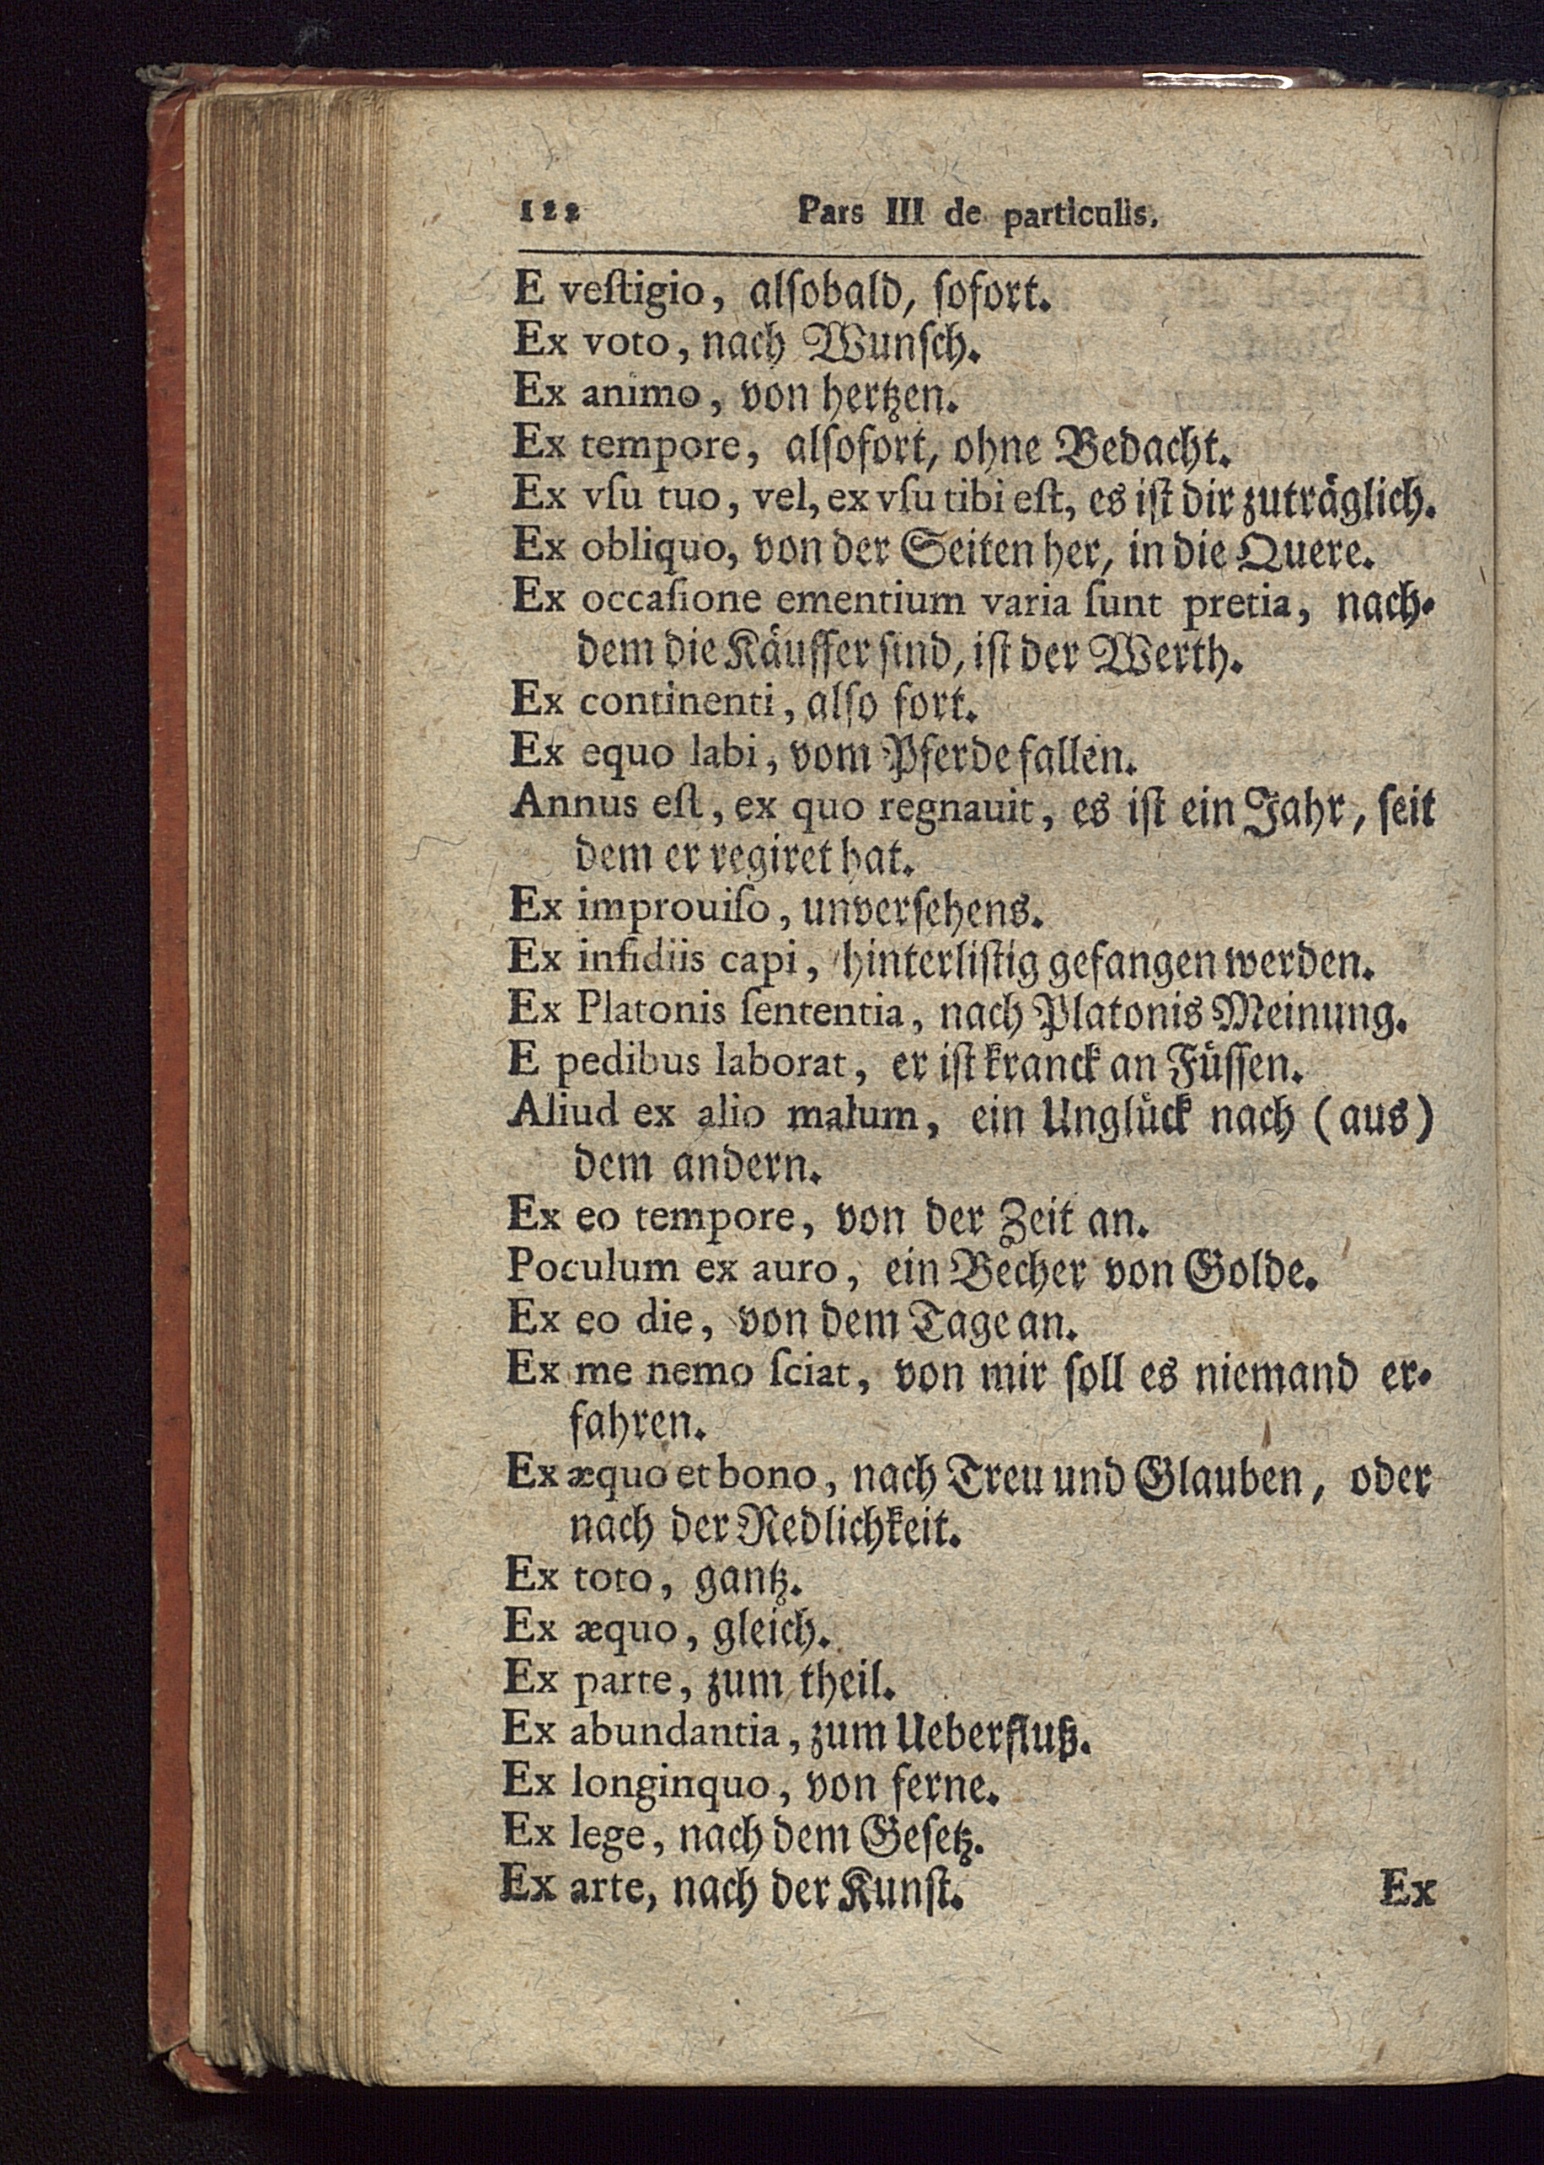 122 Pars III de particulis.
E veſtigio, alſobald, ſofort.
Ex voto, nach Wunſch.
Ex animo, von hertzen.
Ex tempore, alſofort, ohne Bedacht.
Ex vſu tuo, vel, ex vſu tibi eſt, es iſt dir zuträglich.
Ex obliquo, von der Seiten her, in die Quere.
Ex occaſione ementium varia ſunt pretia, nach-
dem die Käuffer ſind, iſt der Werth.
Ex continenti, alſo fort.
Ex equo labi, vom Pferde fallen.
Annus eſt, ex quo regnauit, es iſt ein Jahr, ſeit
dem er regiret hat.
Ex improuiſo, unverſehens.
Ex inſidiis capi, hinterliſtig gefangen werden.
Ex Platonis ſententia, nach Platonis Meinung.
E pedibus laborat, er iſt kranck an Füſſen.
Aliud ex alio malum, ein Unglück nach (aus)
dem andern.
Ex eo tempore, von der Zeit an.
Poculum ex auro, ein Becher von Golde.
Ex eo die, von dem Tage an.
Ex me nemo ſciat, von mir ſoll es niemand er-
fahren.
Ex æquo et bono, nach Treu und Glauben, oder
nach der Redlichkeit.
Ex toto, gantz.
Ex æquo, gleich.
Ex parte, zum theil.
Ex abundantia, zum Ueberfluß.
Ex longinquo, von ferne.
Ex lege, nach dem Geſetz.
Ex arte, nach der Kunſt. Ex